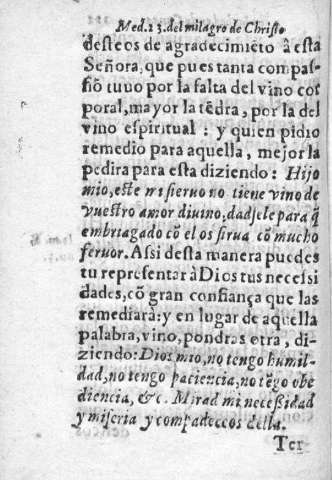 Med.23.del milagro de Christo
desseos de agradecimiẽto â esta
Señora, que pues tanta compas-
siõ tuuo por la falta del vino cor
poral, mayor la tẽdra, por la del
vino espiritual : y quien pidio
remedio para aquella, mejor la
pedira para esta diziendo: Hijo
mio, este mi sieruo no tiene vino de
vuestro amor diuino, dadsele para q̃
embriagado cõ el os sirua cõ mucho
feruor. Assi desta manera puedes
tu representar â Dios tus necessi
dades, cõ gran confiança que las
remediarâ: y en lugar de aquella
palabra, vino, pondras otra, di-
ziendo: Dios mio, no tengo humil-
dad, no tengo paciencia, no tẽgo obe
diencia, &c. Mirad mi necessidad
y miseria y compadeceos della.
Ter-